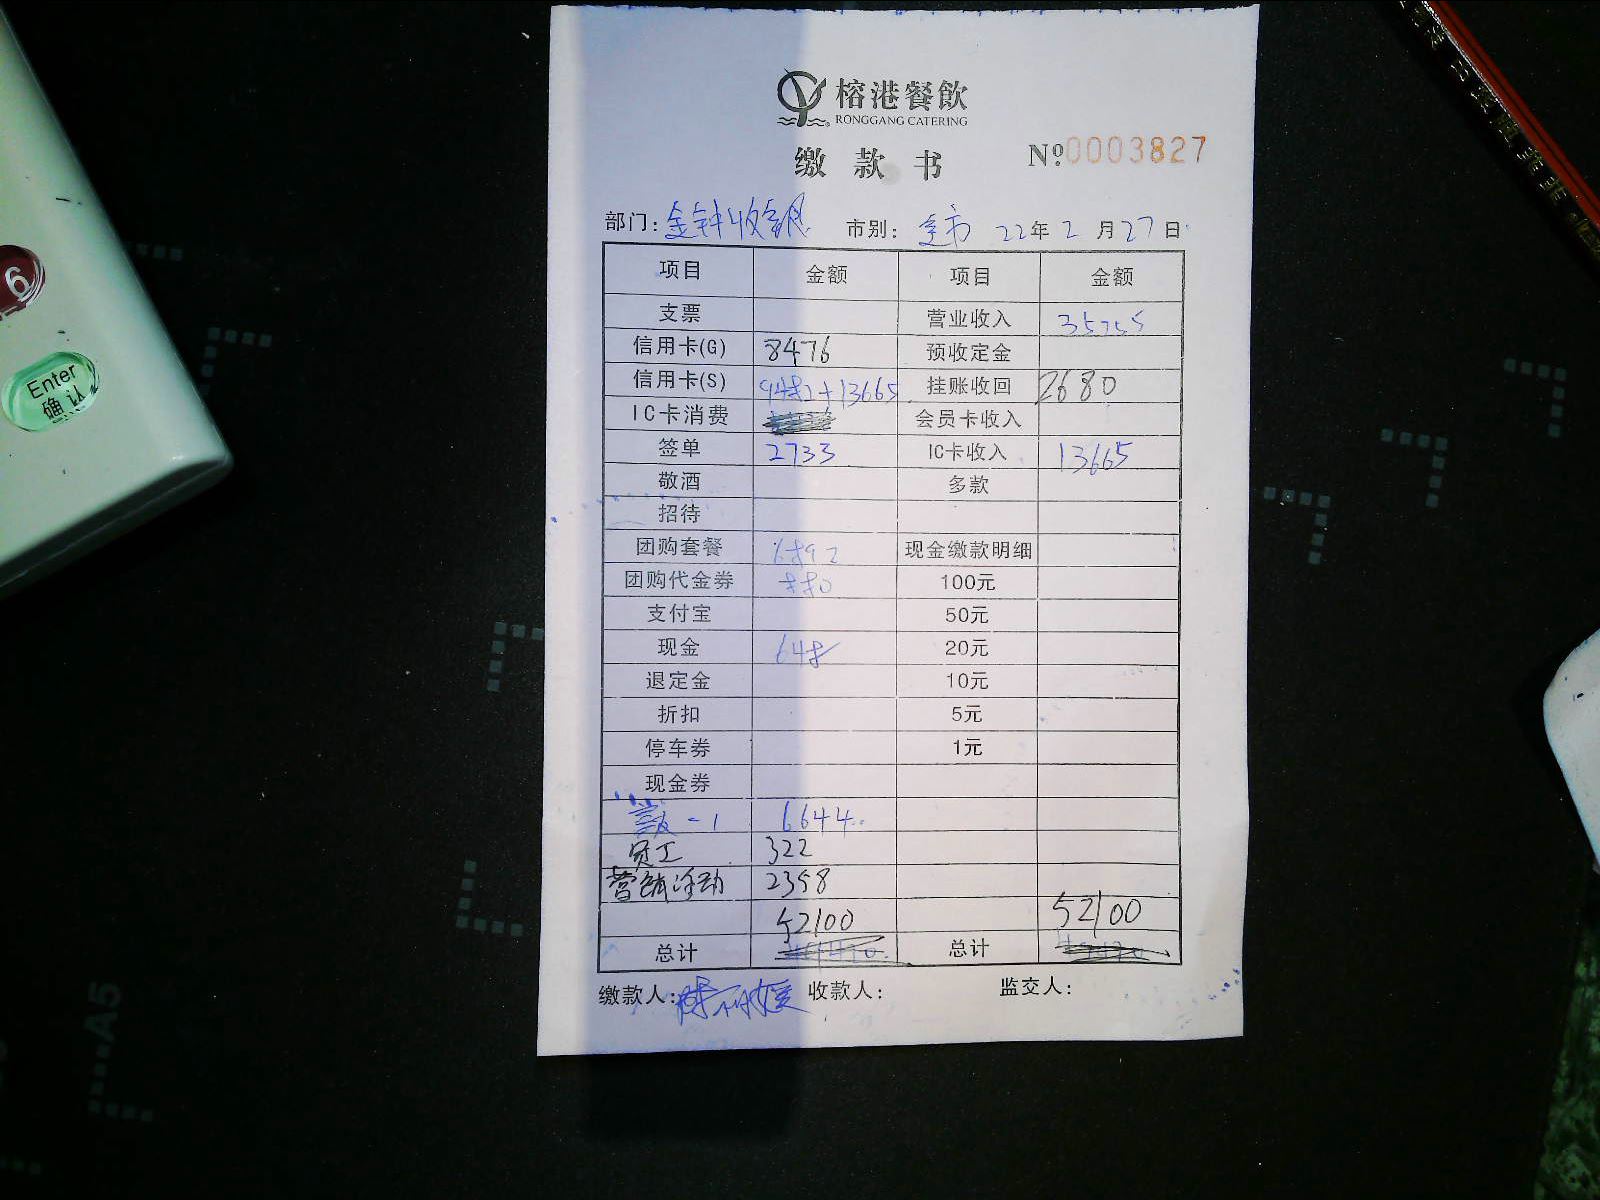 榕港餐飲
RONGGANG CATERING
缴款书 №0003827
部门：金钟收银 市别：全市 22年2月27日
项目 金额 项目 金额
支票 营业收入 35755
信用卡(G) 8476 预收定金
信用卡(S) 9482+13665 挂账收回 2680
IC卡消费 会员卡收入
签单 2733 IC卡收入 13665
敬酒 多款
招待
团购套餐 6892 现金缴款明细
团购代金券 880 100元
支付宝 50元
现金 648 20元
退定金 10元
折扣 5元
停车券 1元
现金券
6644
员工 322
营销活动 2358
52100 52100
总计 总计
缴款人： 收款人： 监交人：
Enter
确认
6
A5